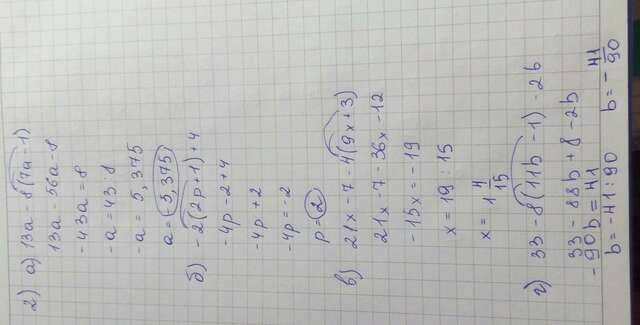 2) а) 13a - 8(7a - 1)
13a - 56a - 8
- 43a = 8
- a = 43 8
- a = 5,375
a = -5,375
б) - 2(2p + 1) + 4
-4p - 2 + 4
-4p + 2
-4p = -2
p = 2
в) 21x - 7 - 4(9x + 3)
21x - 7 - 36x - 12
-15x = -19
x = 19 : 15
x = 1 4/15
г) 33 - 8(11b - 1) - 2b
33 - 88b + 8 - 2b
- 90b = 41
b = -41 : 90 b = - 41/90